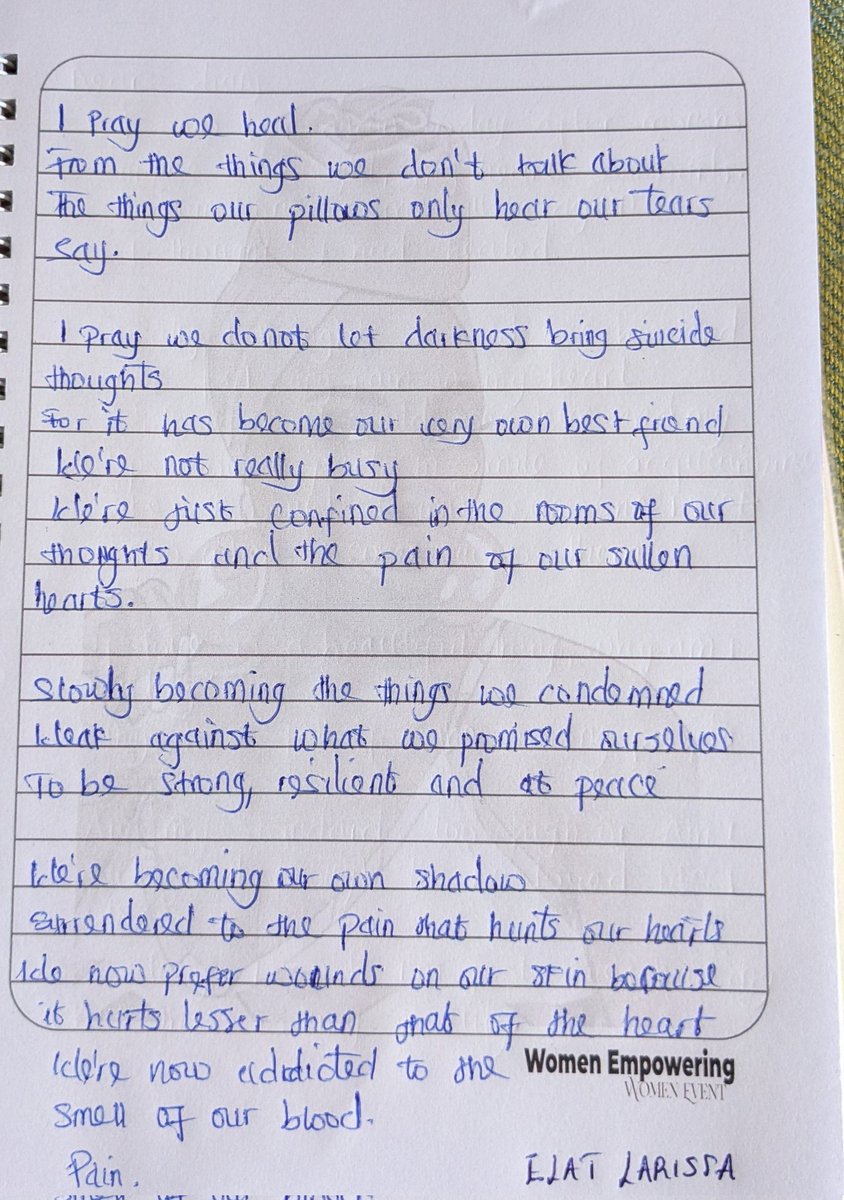 I Pray we heal.
From the things we don't talk about
The things our pillows only hear our tears
say.
I Pray we do not let darkness bring suicide
thoughts
For it has become our very own best friend
We're not really busy
We're just confined in the rooms of our
thoughts and the pain of our sullen
hearts.
Slowly becoming the things we condemned
Weak against what we promised ourselves
To be strong, resilient and at peace
We're becoming our own shadow
Surrendered to the pain that hunts our hearts
We now prefer wounds on our skin because
it hurts lesser than that of the heart
We're now addicted to the
Women Empowering
WOMEN EVENT
smell of our blood.
Pain.
ELAT LARISSA